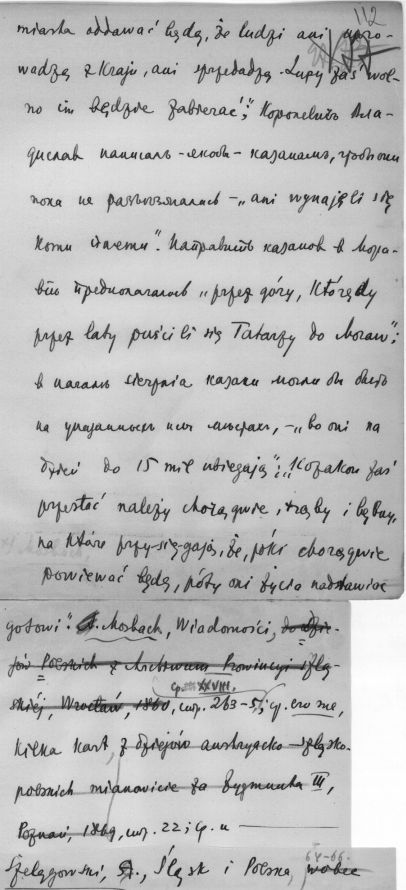 112
miasta oddawać będą, że ludzi ani upro-
wadzą z Kraju, ani sprzedadzą. Łupy zaś wol-
no im będzie zabierać"; Королевичъ Вла-
диславъ написалъ -якобы- казакамъ, чтобы они
пока не разъѣзжались - „ani wynajęli się
. Направить казаковъ в Мора-
вію предполагалось „przez góry, Którędy
przez laty puścili się Tatarzy do Moraw";
в началѣ sierpnia казаки могли бы быть
на указанныхъ имъ мѣстахъ, - „bo oni na
dzień do 15 mil ubiegają"; „Kozakom zaś
przesłać należy chorągwie, trąby i bębny,
na Które przysięgają, że, póki chorągwie
powiewać będą, póty oni życia nadstawiać
gotowi". Mosbach, Wiadomości, do dzie-
jów Polskich z Archiwum Prowincyi szlą-
ср. XXVIII.
skiéj, Wrocław, 1860, стр. 263-5; ср. его же,
Kilka Kart z dziejów austryacko-szląsko-
polskich mianowicie za Zygmunta III,
Poznań, 1869, стр. 22; ср. и
64-66.
Szelągowski, A., Śląsk i Polska, wobec